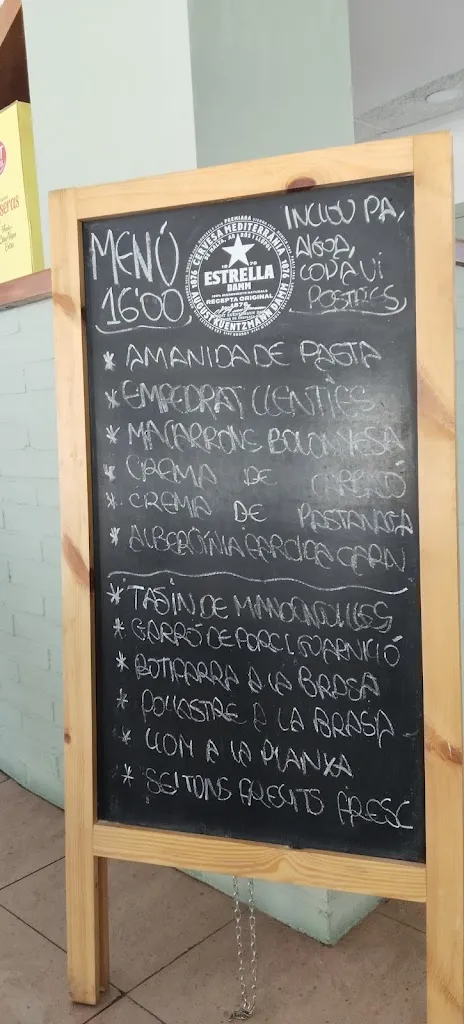 MENÚ
16'00
INCLOU PA,
AIGUA,
COPA VI
POSTRES
PREMIADA
CERVESA MEDITERRÀNIA
1876
ESTRELLA
DAMM
RECEPTA ORIGINAL
1876
AUGUST KUENTZMANN DAMM
* AMANIDA DE PASTA
* EMPEDRAT LLENTIES
* MACARRONS BOLONYESA
* CREMA DE CARBASSÓ
* CREMA DE PASTANAGA
* ALBERGÍNIA FARCIDA CARN
* TAJIN DE MANDONGUILLES
* GARRÓ DE PORC I GUARNICIÓ
* BOTIFARRA A LA BRASA
* POLLASTRE A LA BRASA
* LLOM A LA PLANXA
* SEITONS FREGITS FRESC
seras